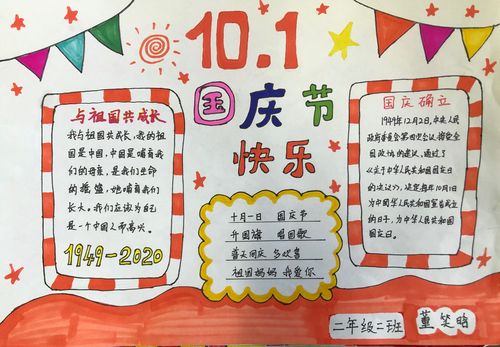 10.1
国庆节
快乐
与祖国共成长
我与祖国共成长,我的祖
国是中国,中国是哺育我
们的母亲,是我们生命
的摇篮,她哺育我们
长大。我们应该为自己
是一个中国人而高兴。
1949-2020
十月一日 国庆节
升国旗 唱国歌
普天同庆 多欢喜
祖国妈妈 我爱你
国庆确立
1949年12月2日,中央人民
政府委员会第四次会议,接受全
国政协的建议,通过了
《关于中华人民共和国国庆日
的决议》,决定每年10月1日
为中华人民共和国宣告成立
的日子,为中华人民共和国
国庆日。
二年级二班
董笑晗